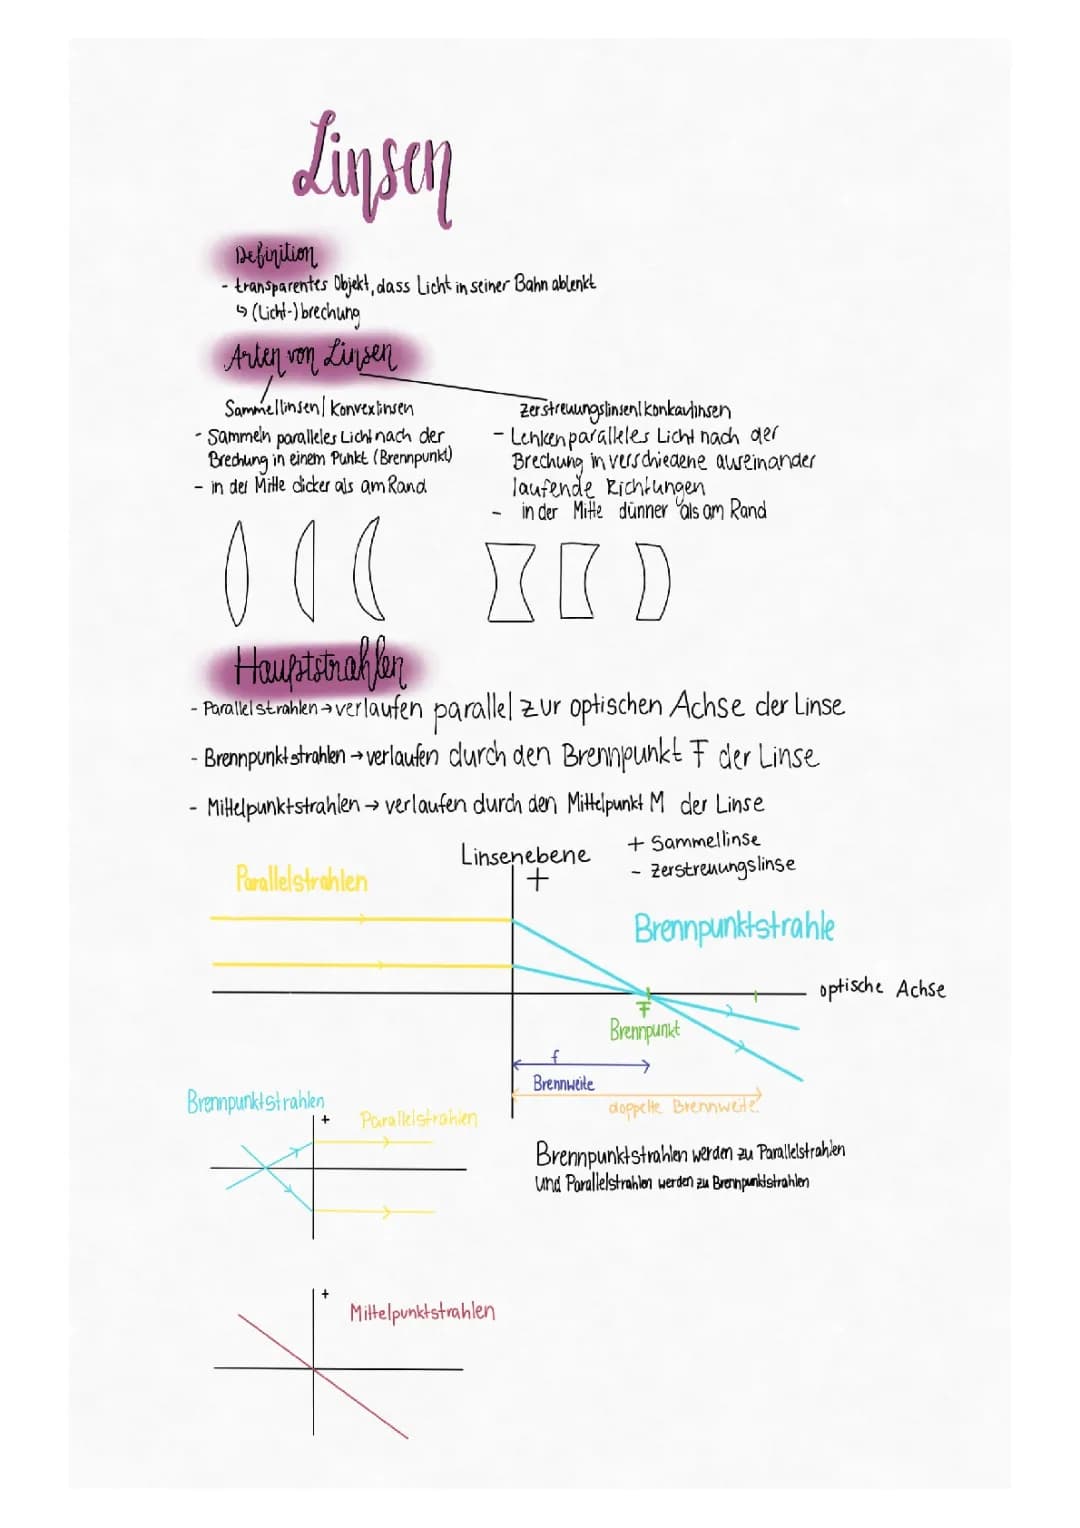 Linsen
Definition
- transparentes Objekt, dass Licht in seiner Bahn ablenkt
↳ (Licht-) brechung
Arten von Linsen
Sammellinsen | Konvexlinsen
- Sammeln paralleles Licht nach der
Brechung in einem Punkt (Brennpunkt)
- in der Mitte dicker als am Rand
Zerstreuungslinsen | konkavlinsen
- Lenken paralleles Licht nach der
Brechung in verschiedene auseinander
laufende Richtungen
- in der Mitte dünner als am Rand
Hauptstrahlen
- Parallelstrahlen → verlaufen parallel zur optischen Achse der Linse
- Brennpunktstrahlen → verlaufen durch den Brennpunkt F der Linse
- Mittelpunktstrahlen → verlaufen durch den Mittelpunkt M der Linse
+ Sammellinse
- Zerstreuungslinse
Linsenebene
+
Parallelstrahlen
Brennpunktstrahle
optische Achse
F
Brennpunkt
f
Brennweite
doppelte Brennweite
Brennpunktstrahlen
+
Parallelstrahlen
Brennpunktstrahlen werden zu Parallelstrahlen
und Parallelstrahlen werden zu Brennpunktstrahlen
+
Mittelpunktstrahlen